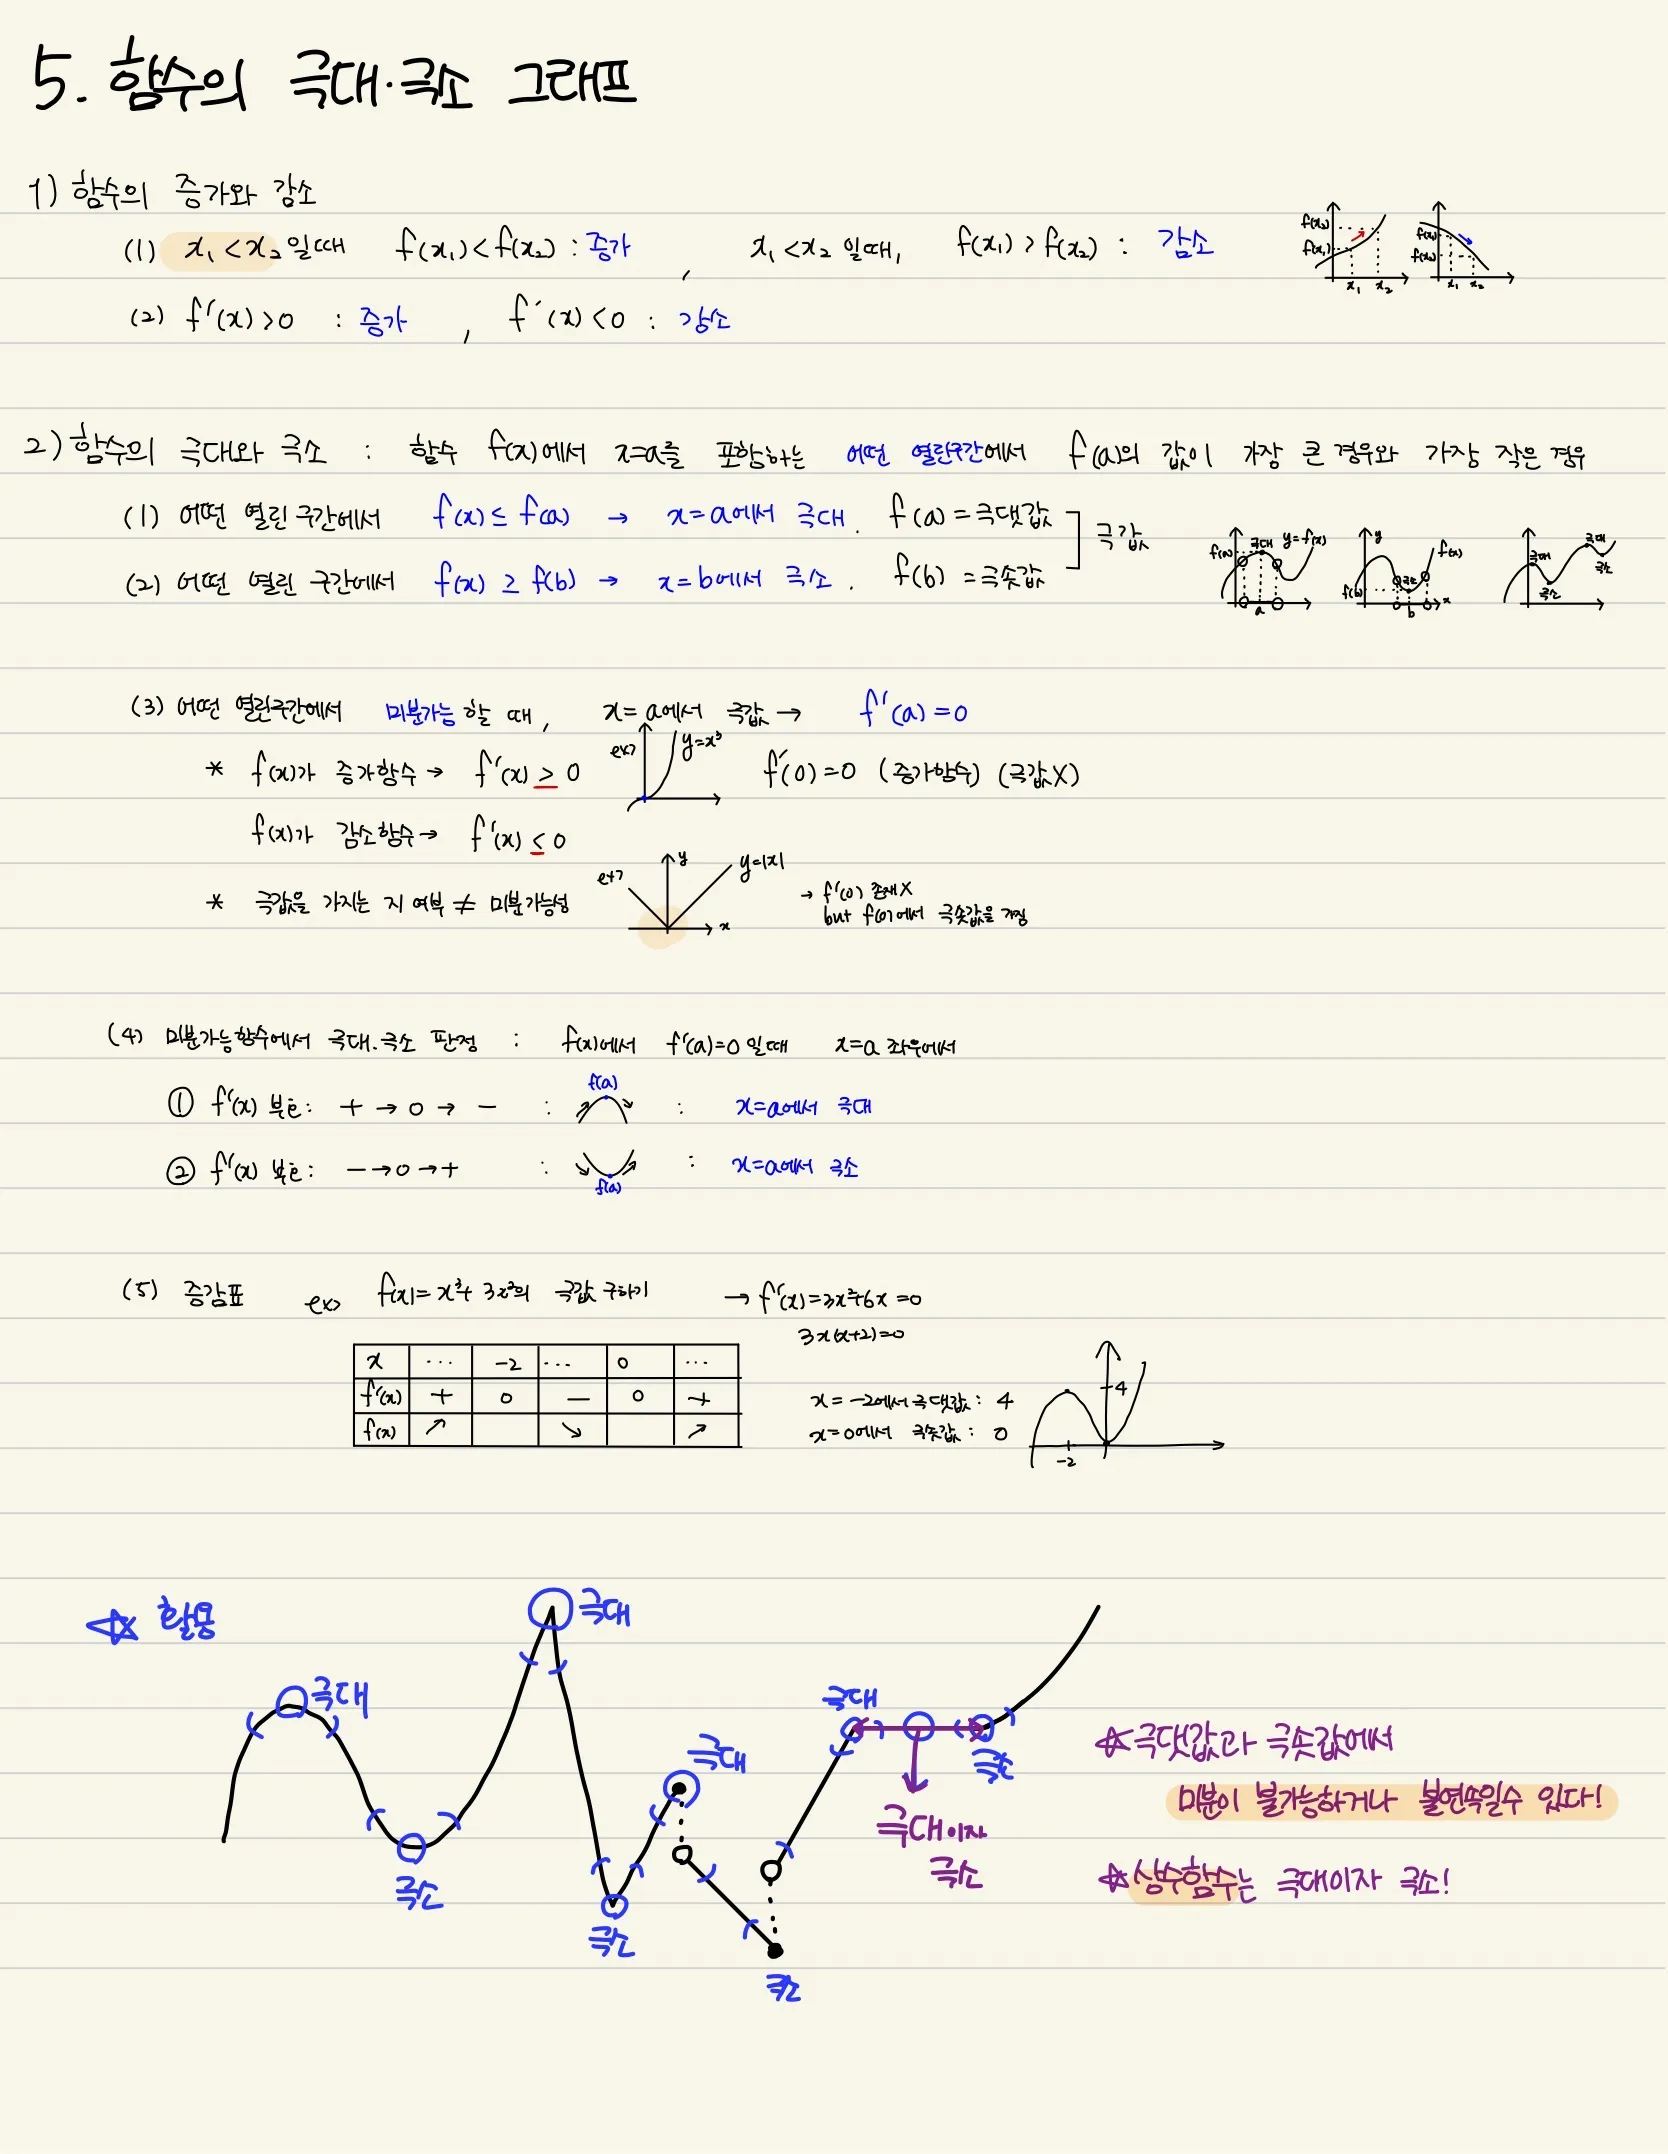 5. 함수의 극대·극소 그래프
1) 함수의 증가와 감소
(1) x₁ < x₂ 일때 f(x₁) < f(x₂) : 증가 , x₁ < x₂ 일때, f(x₁) > f(x₂) : 감소
f(x₂) f(x₁) x₁ x₂
f(x₁) f(x₂) x₁ x₂
(2) f'(x) > 0 : 증가 , f'(x) < 0 : 감소
2) 함수의 극대와 극소 : 함수 f(x)에서 x=a를 포함하는 어떤 열린구간에서 f(a)의 값이 가장 큰 경우와 가장 작은 경우
(1) 어떤 열린 구간에서 f(x) ≤ f(a) → x=a에서 극대. f(a) = 극댓값
극값
(2) 어떤 열린 구간에서 f(x) ≥ f(b) → x=b에서 극소. f(b) = 극솟값
f(a) 극대 y=f(x) a
y f(x) f(b) 극소 b x
극대 극소 극대 극소
(3) 어떤 열린구간에서 미분가능 할 때, x=a에서 극값 → f'(a) = 0
* f(x)가 증가함수 → f'(x) ≥ 0 ex> y=x³ f'(0)=0 (증가함수) (극값X)
f(x)가 감소함수 → f'(x) ≤ 0
* 극값을 가지는 지 여부 ≠ 미분가능성 ex> y y=|x| x → f'(0) 존재X
but f(0)에서 극솟값을 가짐
(4) 미분가능함수에서 극대.극소 판정 : f(x)에서 f'(a)=0 일때 x=a 좌우에서
① f'(x) 부호: + → 0 → − : f(a) : x=a에서 극대
② f'(x) 부호: − → 0 → + : f(a) : x=a에서 극소
(5) 증감표 ex> f(x) = x³+3x²의 극값 구하기 → f'(x) = 3x²+6x = 0
3x(x+2)=0
x ··· -2 ··· 0 ···
f'(x) + 0 − 0 +
f(x) ↗ ↘ ↗
x = -2에서 극댓값 : 4
x=0에서 극솟값 : 0
4
-2
☆ 활용
극대
극대
극대
극대
극소
극소
극소
극소
극대이자
극소
☆극댓값과 극솟값에서
미분이 불가능하거나 불연속일수 있다!
☆상수함수는 극대이자 극소!